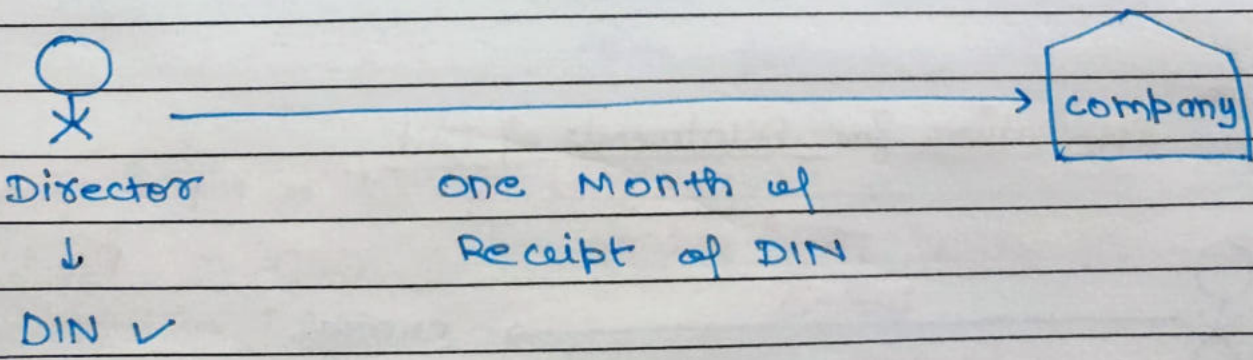 company
Director one Month of
↓ Receipt of DIN
DIN ✓